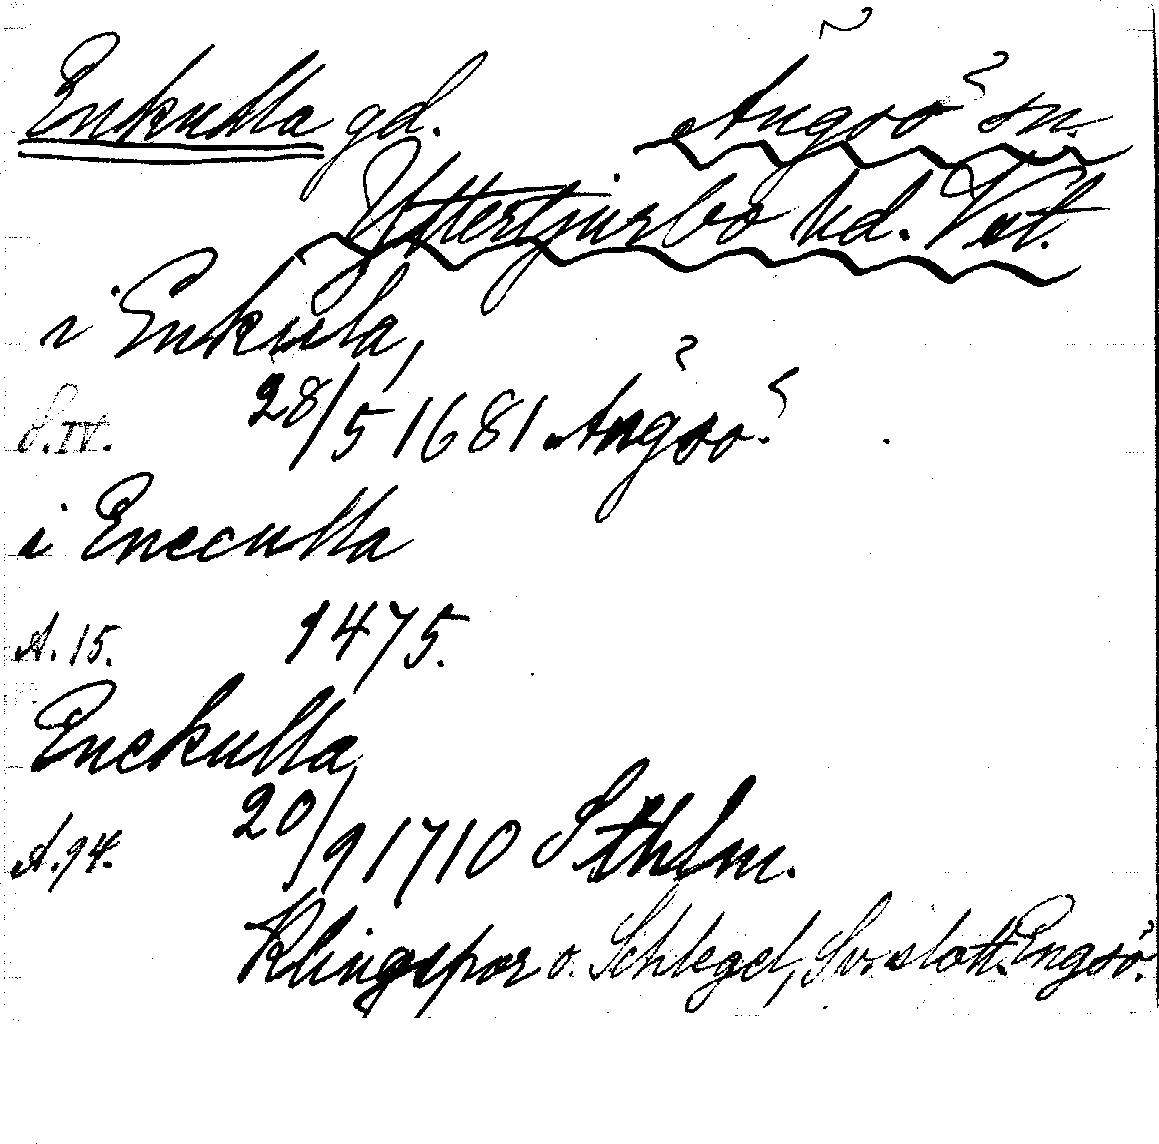 Enkulla gd. Ängsö sn.
Yttertjurbo hd. Vst.
i Enkula,
S.IV. 28/5 1681 Ängsö.
i Eneculla
A. 15. 1475.
Enekulla
A. 94. 20/9 1710 Sthlm.
Klingspor o. Schlegel, Sv. slott. Engsö.